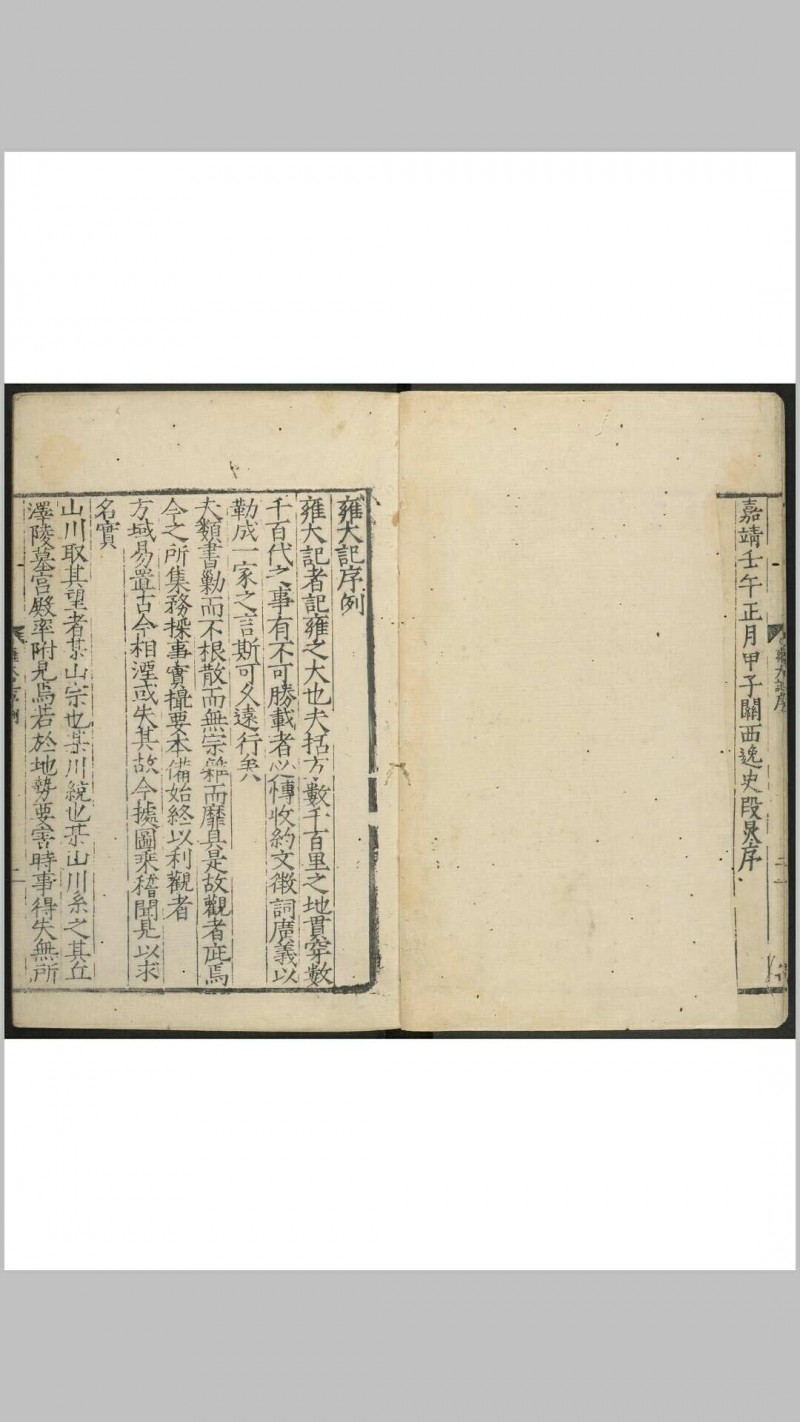 嘉靖壬午正月甲子關西逸史段炅序
雍大記序
雍大記序例
雍大記者記雍之大也夫括方數千百里之地貫穿數
千百代之事有不可勝載者必博收約文徵詞廣義以
勒成一家之言斯可久遠行矣
大類書勦而不根散而無宗雜而靡具是故觀者疵焉
今之所集務採事實撮要本備始終以利觀者
方域易置古今相湮或失其故今據圖乘稽聞見以求
名實
山川取其望者某山宗也某川統也某山川系之其丘
澤陵墓宮殿率附見焉若於地勢要害時事得失無所